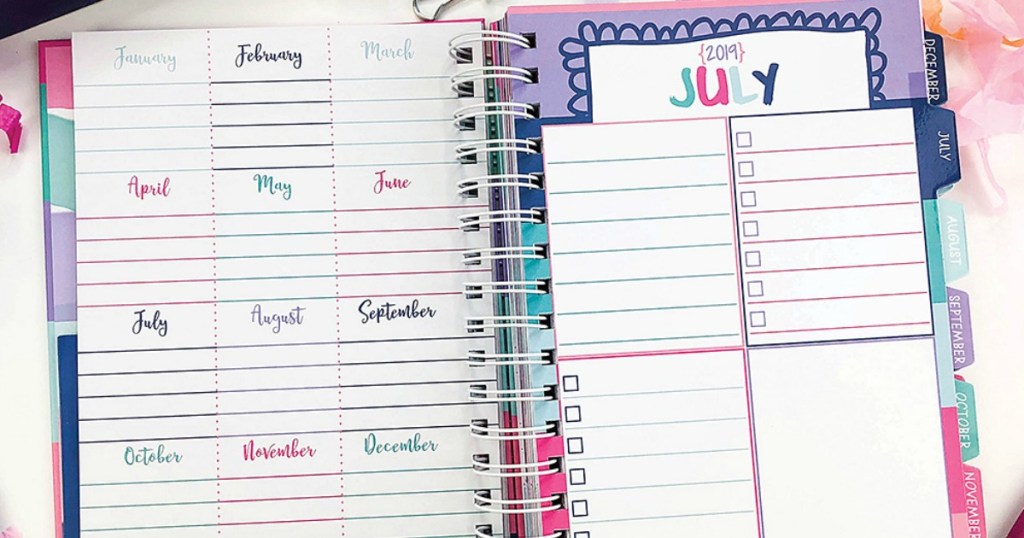 January February March
April May June
July August September
October November December
{2019}
JULY
DECEMBER
JULY
AUGUST
SEPTEMBER
OCTOBER
NOVEMBER